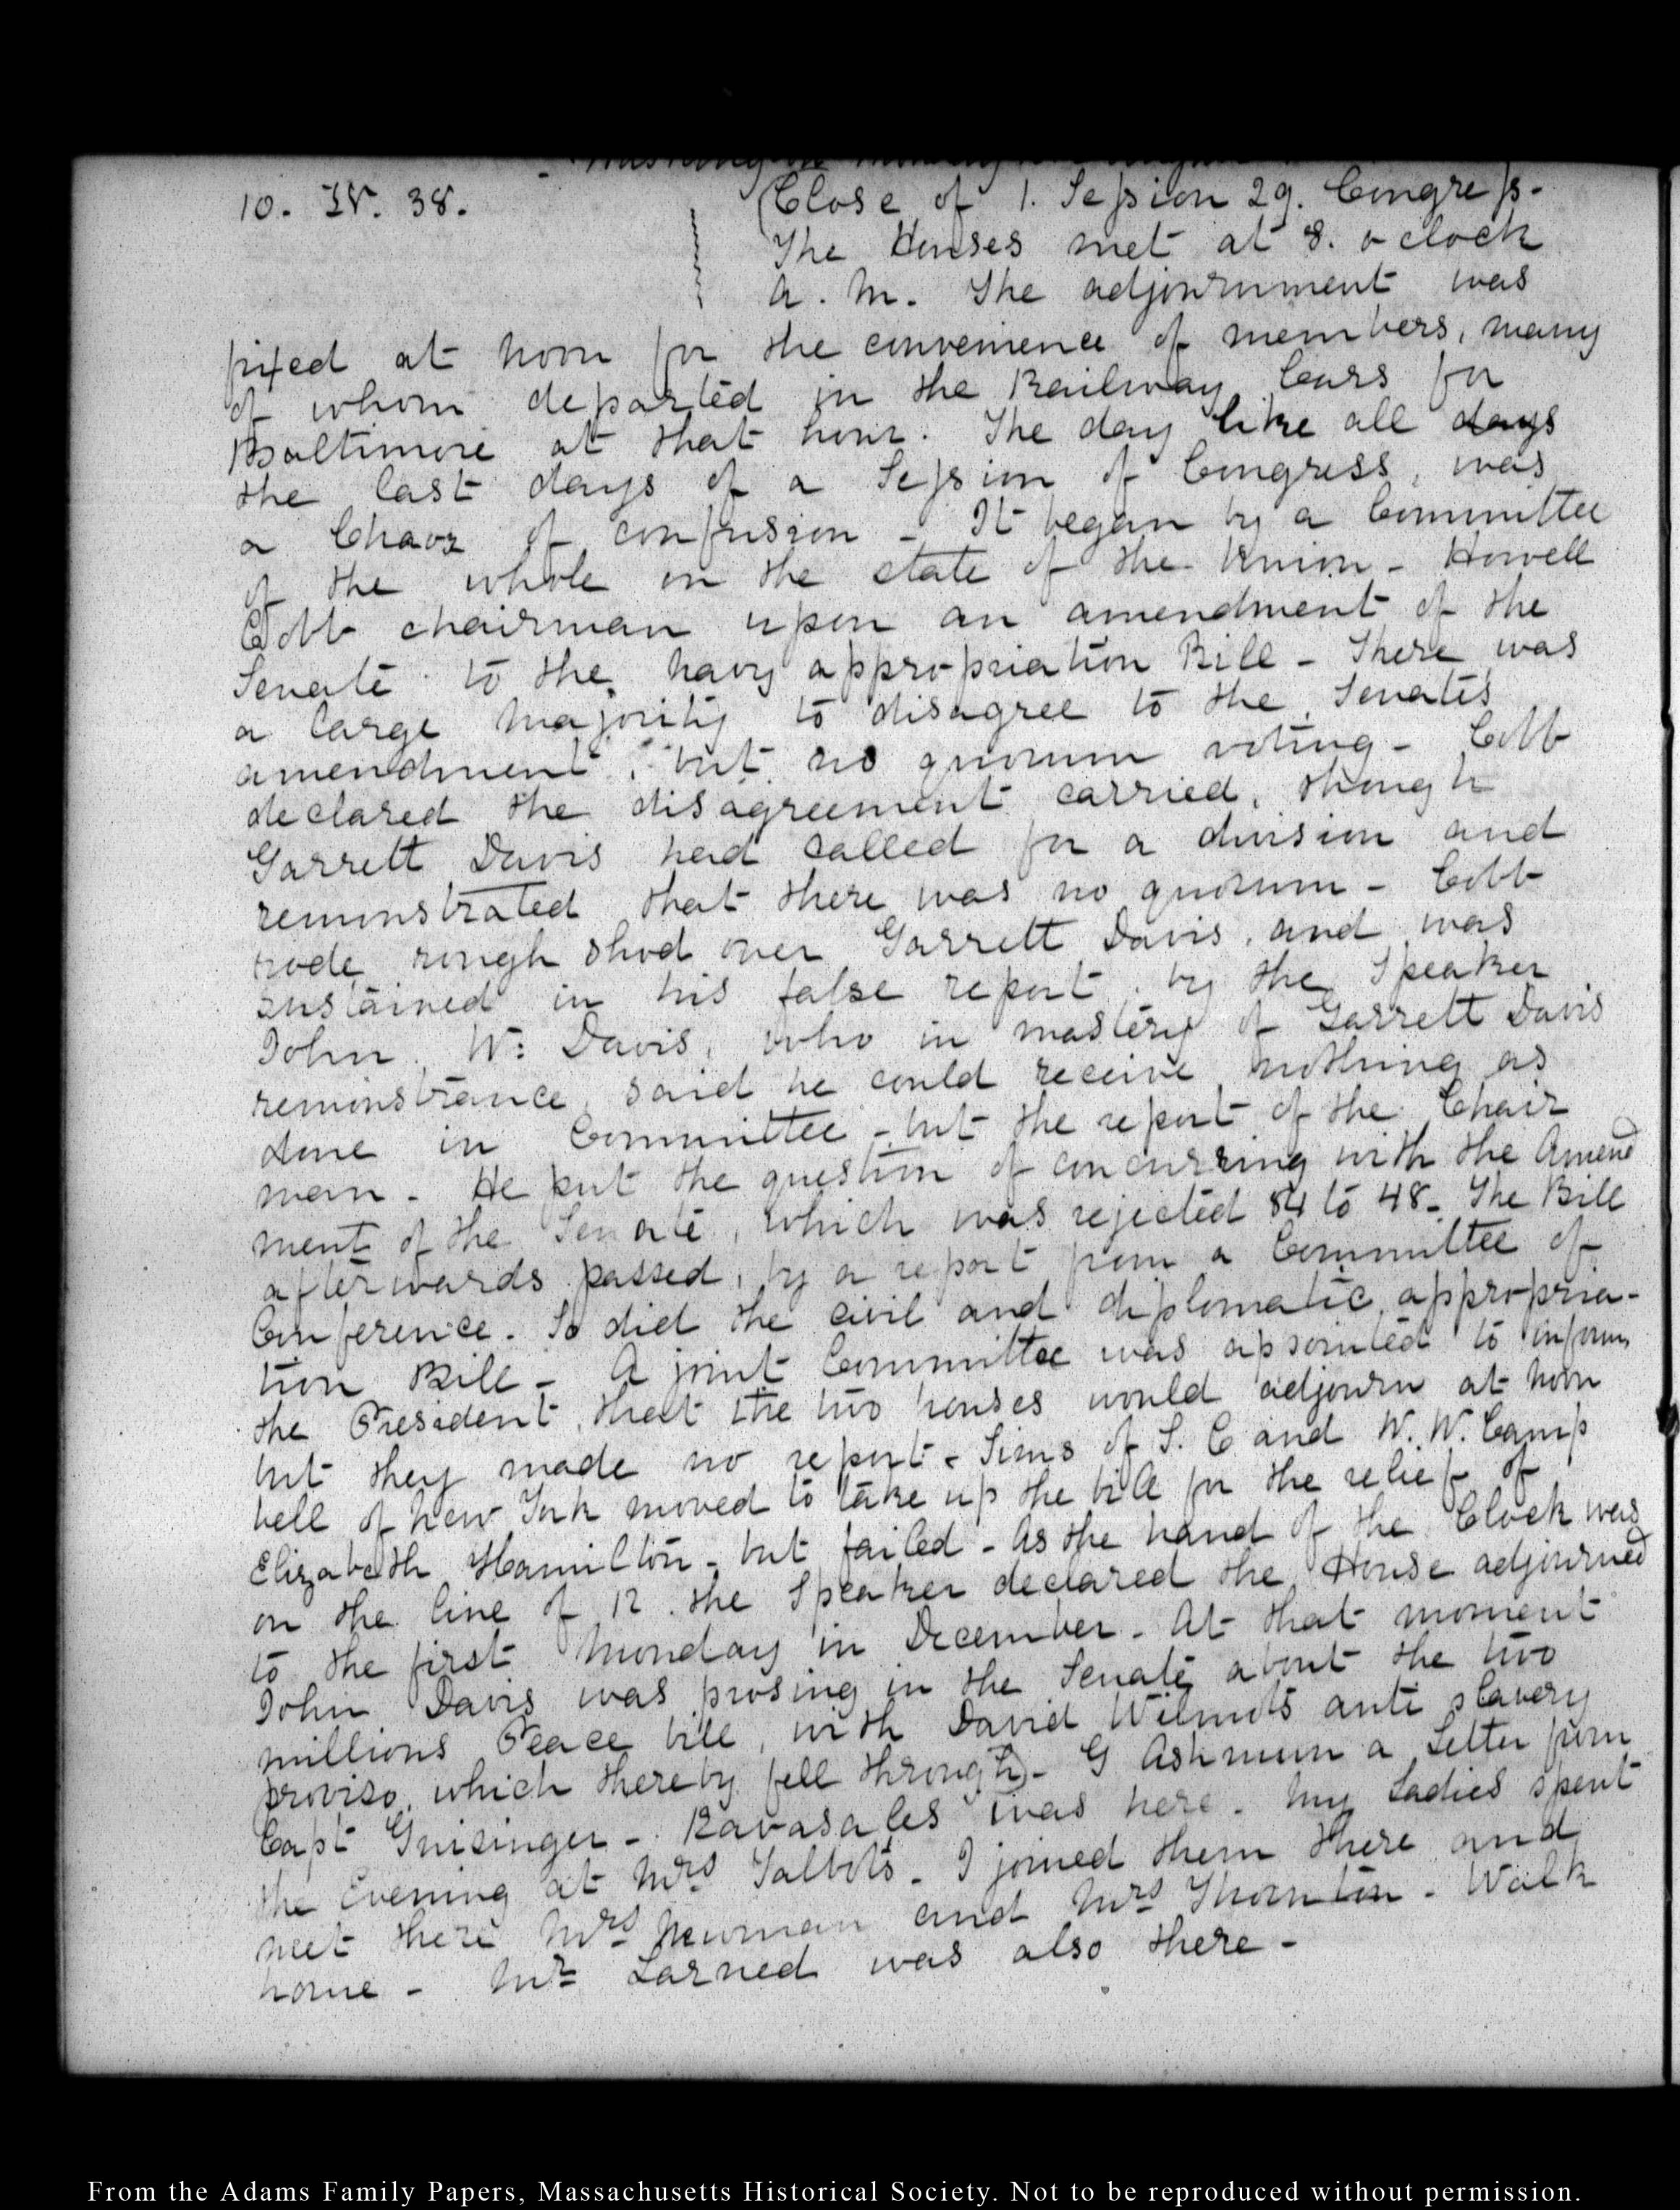 10. IV. 38.
Close of 1. Session 29. Congress-
The Houses met at 8. o clock
A. M. The adjournment was
fixed at noon for the convenience of members, many
of whom departed in the Railway Cars for
Baltimore at that hour. The day like all days
the last days of a Session of Congress, was
a Chaos of confusion - It began by a Committee
of the whole on the state of the Union - Howell
Cobb chairman upon an amendment of the
Senate to the navy appropriation Bill - There was
a large majority to disagree to the Senates
amendment, but no quorum voting - Cobb
declared the disagreement carried, though
Garrett Davis had called for a division and
remonstrated that there was no quorum - Cobb
rode rough shod over Garrett Davis, and was
sustained in his false report, by the Speaker
John W: Davis, who in mastery of Garrett Davis
remonstrance, said he could receive nothing as
done in Committee - but the report of the Chair
man - He put the question of concurring with the Amend
ment of the Senate, which was rejected 84 to 48 - The Bill
afterwards passed, by a report from a Committee of
Conference. So did the civil and diplomatic appropria-
tion Bill - A joint Committee was appointed to inform
the President, that the two houses would adjourn at noon
but they made no report - Sims of S. C and W. W. Camp
bell of New York moved to take up the bill for the relief of
Elizabeth Hamilton - but failed - As the hand of the Clock was
on the line of 12. the Speaker declared the House adjourned
to the first Monday in December - At that moment
John Davis was prosing in the Senate about the two
millions Peace bill, with David Wilmots anti slavery
proviso, which thereby fell through) - G Ashmun a Letter from
Capt Gnisinger - Ravasales was here - My Ladies spent
the Evening at Mrs Talbots - I joined them there and
met there Mrs Newman and Mrs Thornton - Walk
home - Mr Larned was also there -
From the Adams Family Papers, Massachusetts Historical Society. Not to be reproduced without permission.